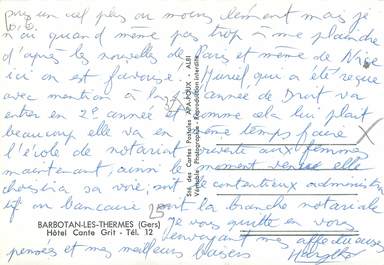 puis un ciel plus ou moins clément mais je
n'ai quand même pas trop à me plaindre
d'après les nouvelles de Paris et même de Nice
ici on est favorisé. Muriel, qui a été reçue
avec mention à la année de Droit va
entrer en 2e année et comme cela lui plaît
beaucoup elle va en même temps faire
l'école de notariat ouverte aux femmes
maintenant, ainsi le moment venu elle
choisira sa voie, soit contentieux administra
tif ou bancaire soit la branche notariale
Je vous quitte en vous
envoyant mes affectueuses
pensées et mes meilleurs baisers
BARBOTAN-LES-THERMES (Gers)
Hôtel Cante Grit - Tél. 12
Sté. des Cartes Postales APA-POUX - ALBI
Véritable Photographie - Reproduction interdite